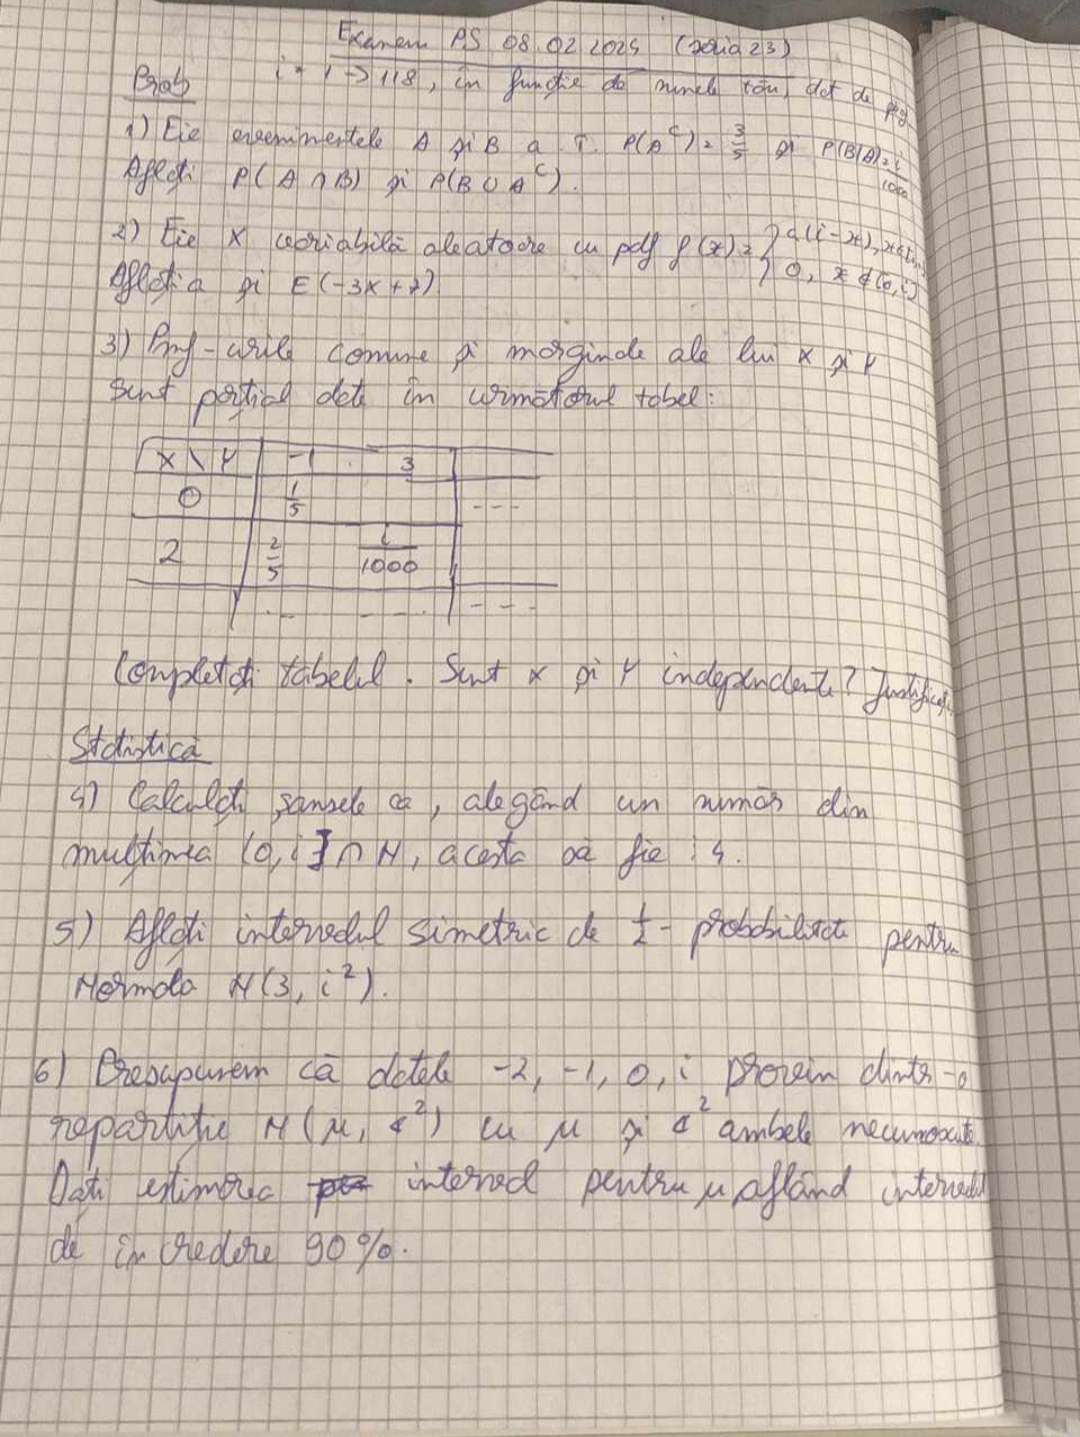 Examen PS 08.02.2025 (seria 23)
Prob
i = 1 -> 118, în funcție de numele tău, dat de prof
1) Fie evenimentele A și B a. î. P(A^C) = 3/5 și P(B|A) = i/1000
Aflați P(A ∩ B) și P(B ∪ A^C).
2) Fie X variabilă aleatoare cu pdf f(x) = { a(i-x), x ∈
0, x ∉ (0, i)
Aflați a și E(-3X+2)
3) Pmf-urile comune și marginale ale lui X și Y
sunt parțial date în următorul tabel:
X \ Y -1 3
0 1/5 ---
2 2/5 i/1000
... --- ---
Completați tabelul. Sunt X și Y independente? Justificați.
Statistică
4) Calculați șansele ca, alegând un număr din
mulțimea (0, i] ∩ N, acesta să fie ⋮ 4.
5) Aflați intervalul simetric de 1/2 - probabilitate pentru
Normala N(3, i²).
6) Presupunem că datele -2, -1, 0, i provin dintr-o
repartiție N(μ, σ²) cu μ și σ² ambele necunoscute.
Dați estimarea interval pentru μ aflând intervalul
de încredere 90%.